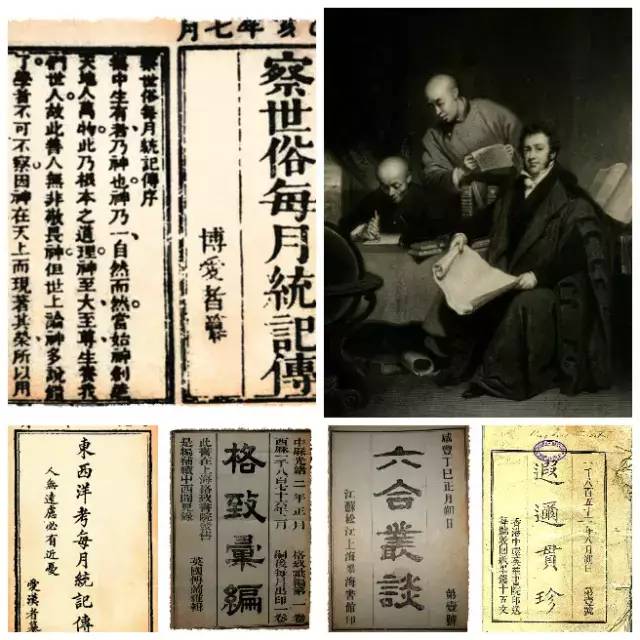 亥年七月
察世俗每月統記傳
博愛者纂
察世俗每月統記傳序
無中生有者乃神也神乃一自然而然當始神創造
天地人萬物此乃根本之道理神至大至尊生養我
們世人故此善人無非敬畏神但世上論神多說錯
了學者不可不察因神在天上而現著其榮所以用
東西洋考每月統記傳
人無遠慮必有近憂
愛漢者纂
中曆光緒二年正月
西曆一千八百七十六年二月
格致彙編第一卷
嗣後每月出印一卷
格致彙編
英國傅蘭雅輯
此書在上海格致書院發售
是編補續中西聞見錄
咸豐丁巳正月朔日
第壹號
六合叢談
江蘇松江上海墨海書館印
一千八百五十三年八月朔日
第壹號
遐邇貫珍
香港中環英華書院印送
每號收回紙墨錢十五文